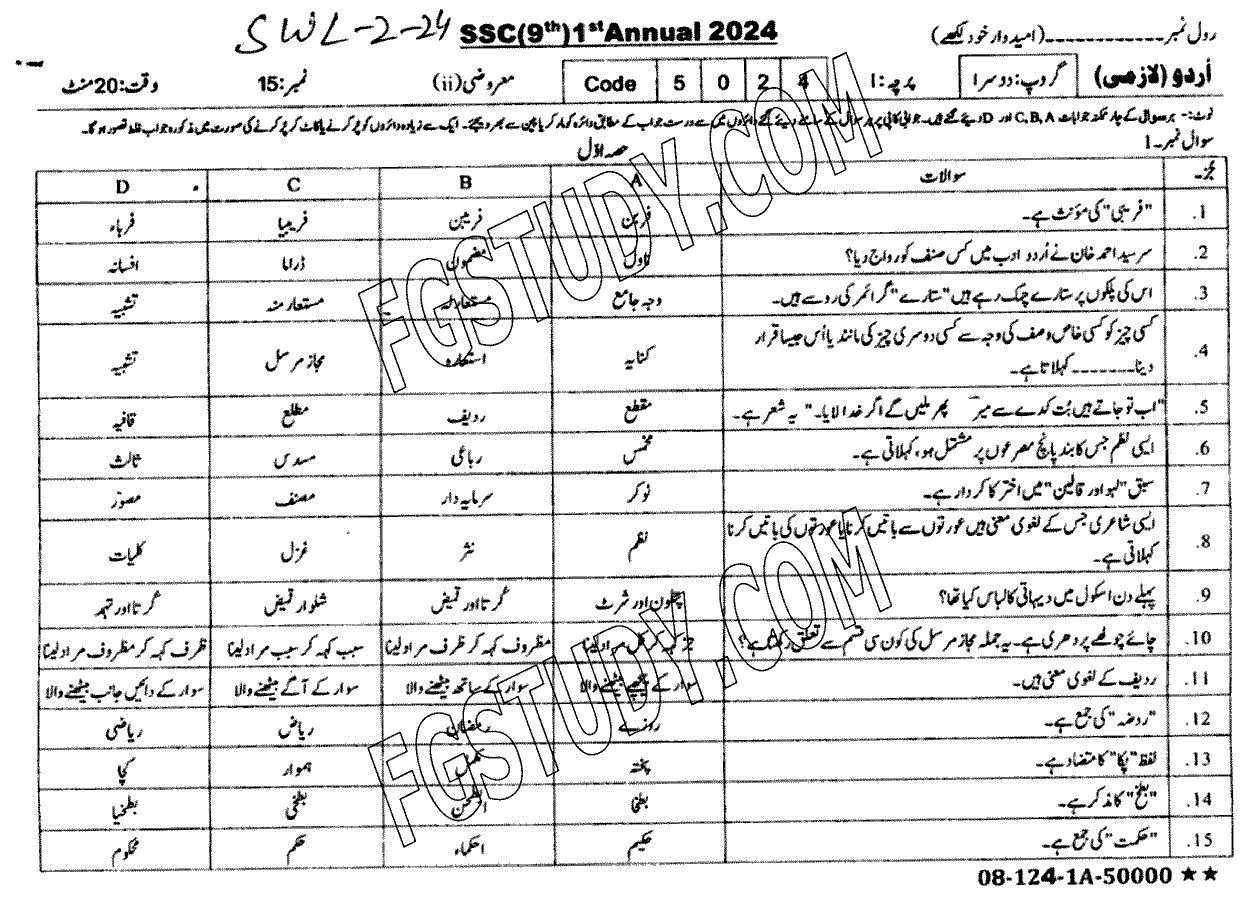 SWL-2-24 SSC(9th)1stAnnual 2024 رول نمبر ـــــــــــــــ(امیدوار خود لکھے)
اُردو (لازمی) گروپ: دوسرا پرچہ: I Code 5 0 2 4 معروضی (ii) نمبر: 15 وقت: 20 منٹ
نوٹ:- ہر سوال کے چار ممکنہ جوابات C, B, A اور D دیئے گئے ہیں۔ جوابی کاپی پر ہر سوال کے سامنے دیئے گئے دائروں میں سے درست جواب کے مطابق دائرہ کو مارکر یا پین سے بھر دیجئے۔ ایک سے زیادہ دائروں کو پُر کرنے یا کاٹ کر پُر کرنے کی صورت میں مذکورہ جواب غلط تصور ہوگا۔
سوال نمبر۔1 حصہ اوّل
جُز۔ سوالات A B C D
1. "فریبی" کی مؤنث ہے۔ فربن فریبن فریبیا فرباء
2. سر سید احمد خان نے اُردو ادب میں کس صنف کو رواج دیا؟ ناول مضمون ڈراما افسانہ
3. اس کی پلکوں پر ستارے چمک رہے ہیں "ستارے" گرائمر کی رو سے ہیں۔ وجہ جامع مستعارلہ مستعارمنہ تشبیہ
4. کسی چیز کو کسی خاص وصف کی وجہ سے کسی دوسری چیز کی مانند یا اُس جیسا قرار
دینا۔۔۔۔۔۔۔۔ کہلاتا ہے۔ کنایہ استعارہ مجاز مرسل تشبیہ
5. "اب تو جاتے ہیں بُت کدے سے میر پھر ملیں گے اگر خدا لایا۔" یہ شعر ہے۔ مقطع ردیف مطلع قافیہ
6. ایسی نظم جس کا بند پانچ مصرعوں پر مشتمل ہو، کہلاتی ہے۔ مخمس رباعی مسدس ثالث
7. سبق "لہو اور قالین" میں اختر کا کردار ہے۔ نوکر سرمایہ دار مصنف مصوّر
8. ایسی شاعری جس کے لغوی معنی ہیں عورتوں سے باتیں کرنا یا عورتوں کی باتیں کرنا
کہلاتی ہے۔ نظم نثر غزل کلیات
9. پہلے دن اسکول میں دیہاتی کا لباس کیا تھا؟ پتلون اور شرٹ کُرتا اور قمیض شلوار قمیض کُرتا اور تہمد
10. چائے چولھے پر دھری ہے۔ یہ جملہ مجاز مرسل کی کون سی قسم سے تعلق رکھتا ہے؟ کہہ کر کل مراد لینا مظروف کہہ کر ظرف مراد لینا سبب کہہ کر سبب مراد لینا ظرف کہہ کر مظروف مراد لینا
11. ردیف کے لغوی معنی ہیں۔ سوار کے پیچھے بیٹھنے والا سوار کے ساتھ بیٹھنے والا سوار کے آگے بیٹھنے والا سوار کے دائیں جانب بیٹھنے والا
12. "روضہ" کی جمع ہے۔ روزے رمضان ریاض ریاضی
13. لفظ "پکا" کا متضاد ہے۔ پختہ مکمل ہموار کچا
14. "بطخ" کا مذکر ہے۔ بطخا بطخی بطخیا
15. "حکمت" کی جمع ہے۔ حکیم احکماء حکم محکوم
08-124-1A-50000 ★★
FGSTUDY.COM
FGSTUDY.COM